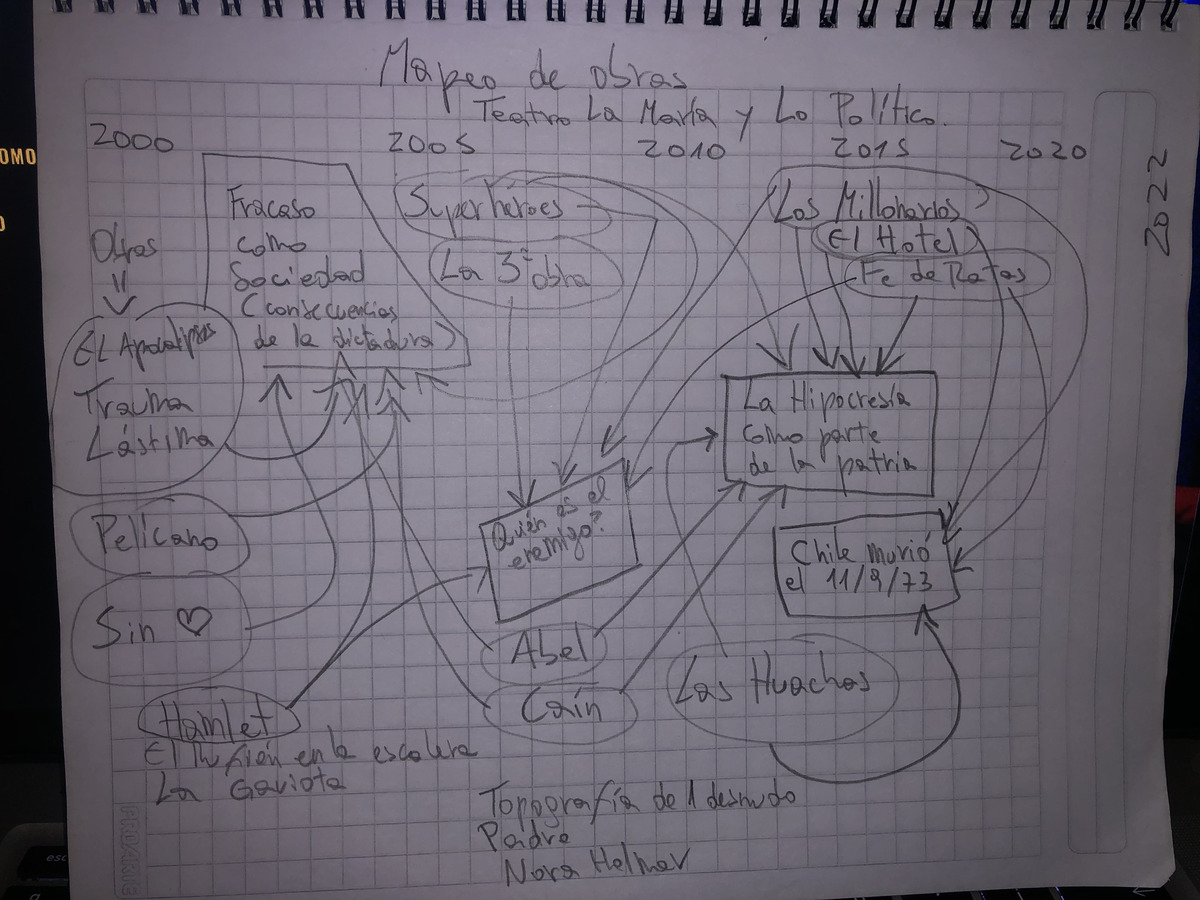 Mapeo de obras
Teatro La María y Lo Político.
2000
2005
2010
2015
2020
2022
OMO
Otras
El Apocalipsis
Trauma
Lástima
Fracaso
como
Sociedad
(consecuencias
de la dictadura)
Superhéroes
La 3ª obra
Los Millonarios
El Hotel
Fe de Ratas
La Hipocresía
como parte
de la patria
Quién es el
enemigo?
Chile murió
el 11/9/73
Pelícano
Sin ♡
Abel
Caín
Los Huachos
Hamlet
El en la escalera
La Gaviota
Topografía de 1 desnudo
Padre
Nora Helmer
esc